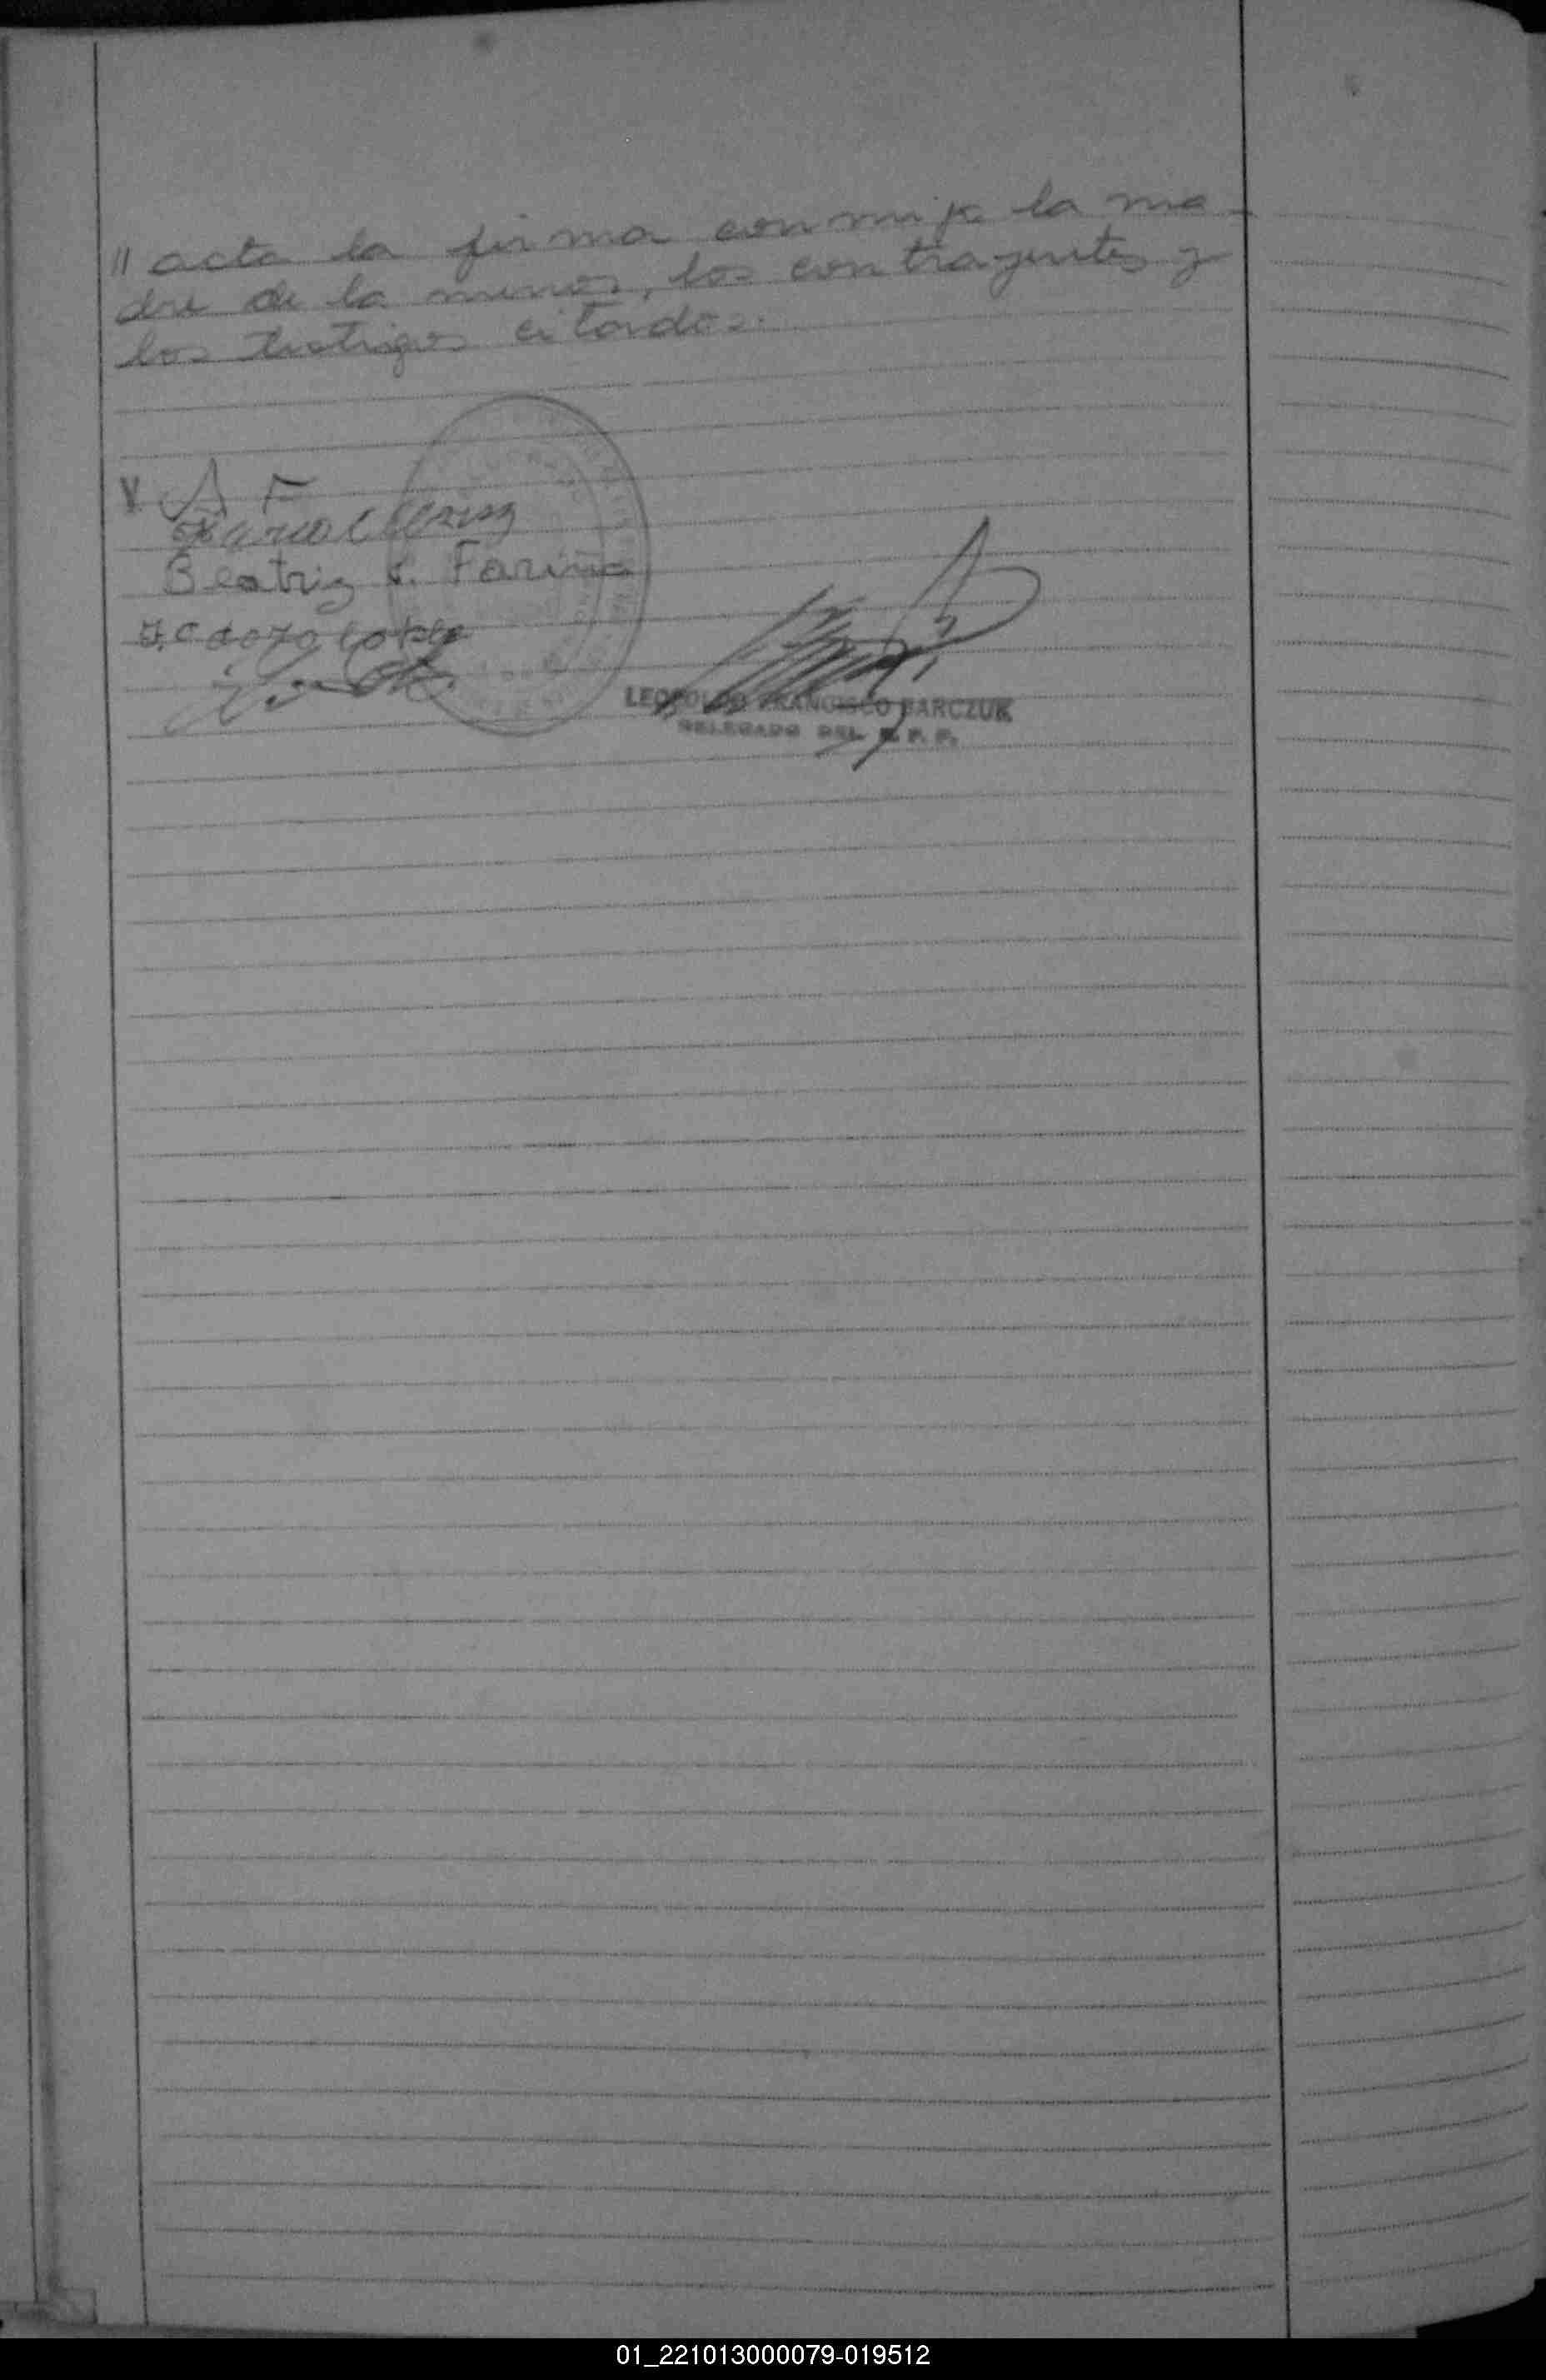 // acta la firma conmigo la ma-
dre de la menor, los contrayentes y
los testigos citados.
A F
Beatriz S. Fariña
LEOPOLDO FRANCISCO BARCZUK
DELEGADO DEL R. P. P.
01_221013000079-019512